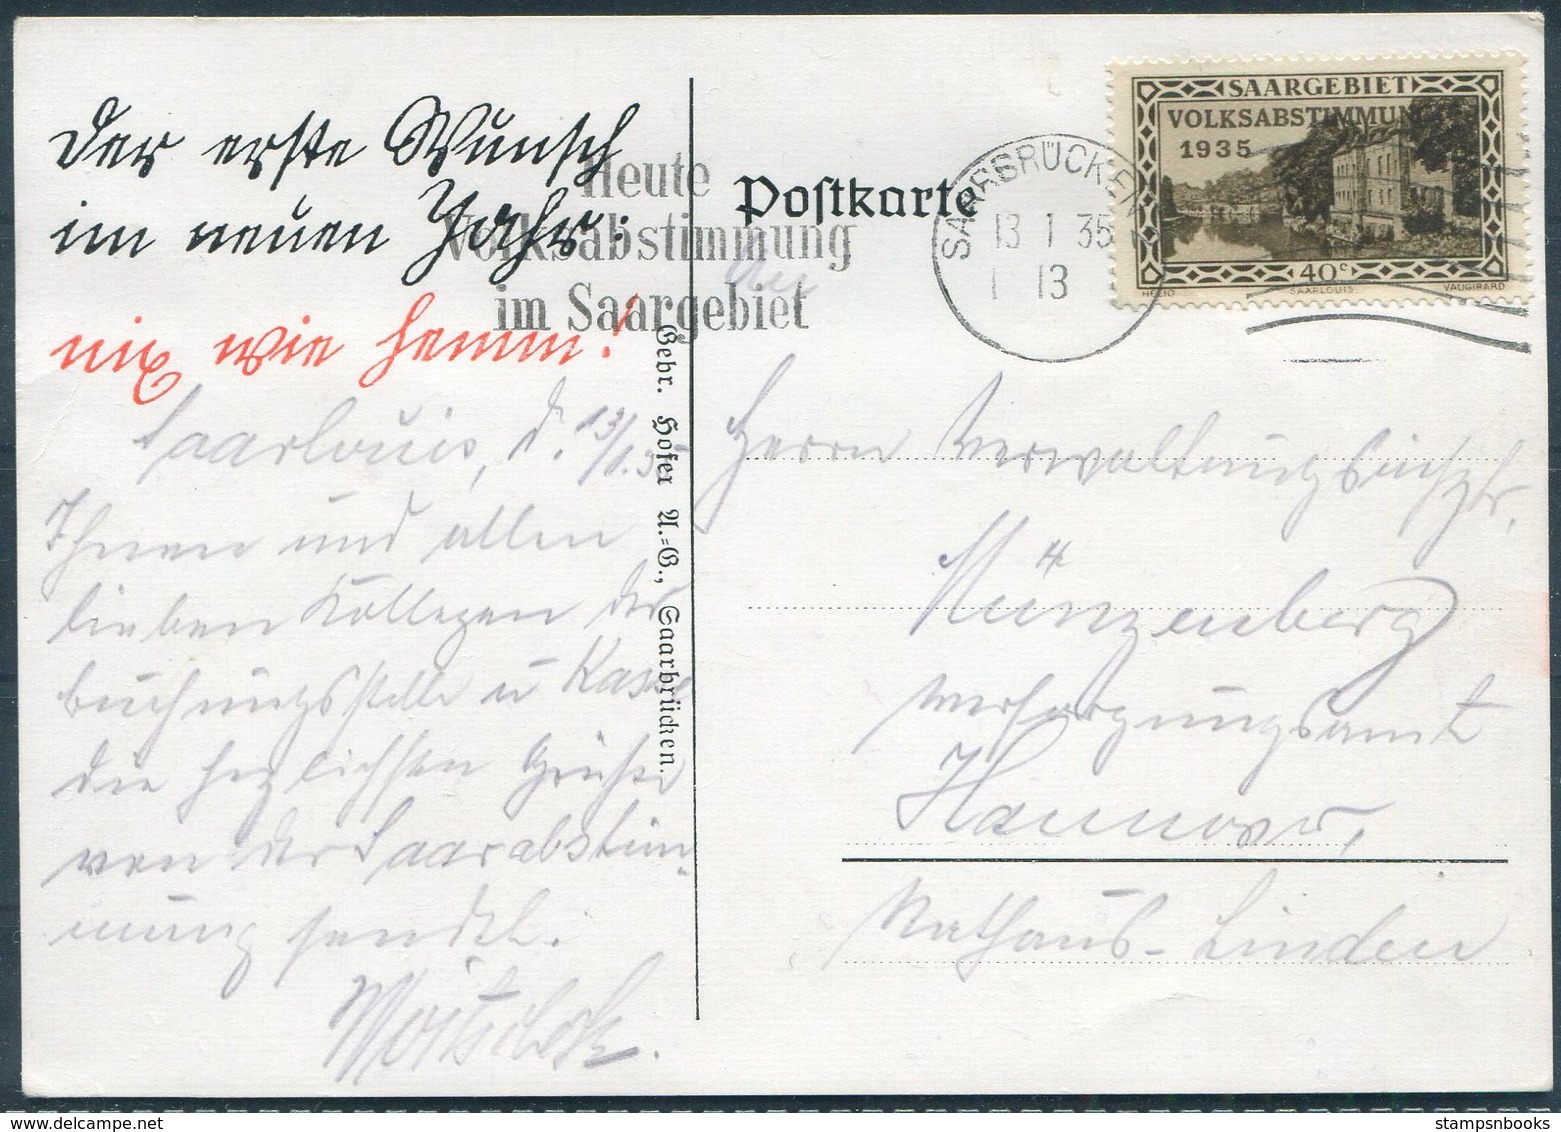 Der erste Wunsch
im neuen Jahr:
nix wie hemm!
Heute
Volksabstimmung
im Saargebiet
Postkarte
SAARBRÜCKEN
13 1 35
13
SAARGEBIET
VOLKSABSTIMMUNG
1935
40c
HELIO SAARLOUIS VAUGIRARD
Gebr. Hofer A.=G., Saarbrücken.
Saarlouis, d. 13/1.35
Ihnen und allen
lieben Kollegen der
Buchungsstelle u Kasse
die herzlichsten Grüße
von der Saarabstim-
mung sendet.
An
Herrn
Münzenberg
Versorgungsamt
Hannover,
Rathaus-Linden
stampsnbooks